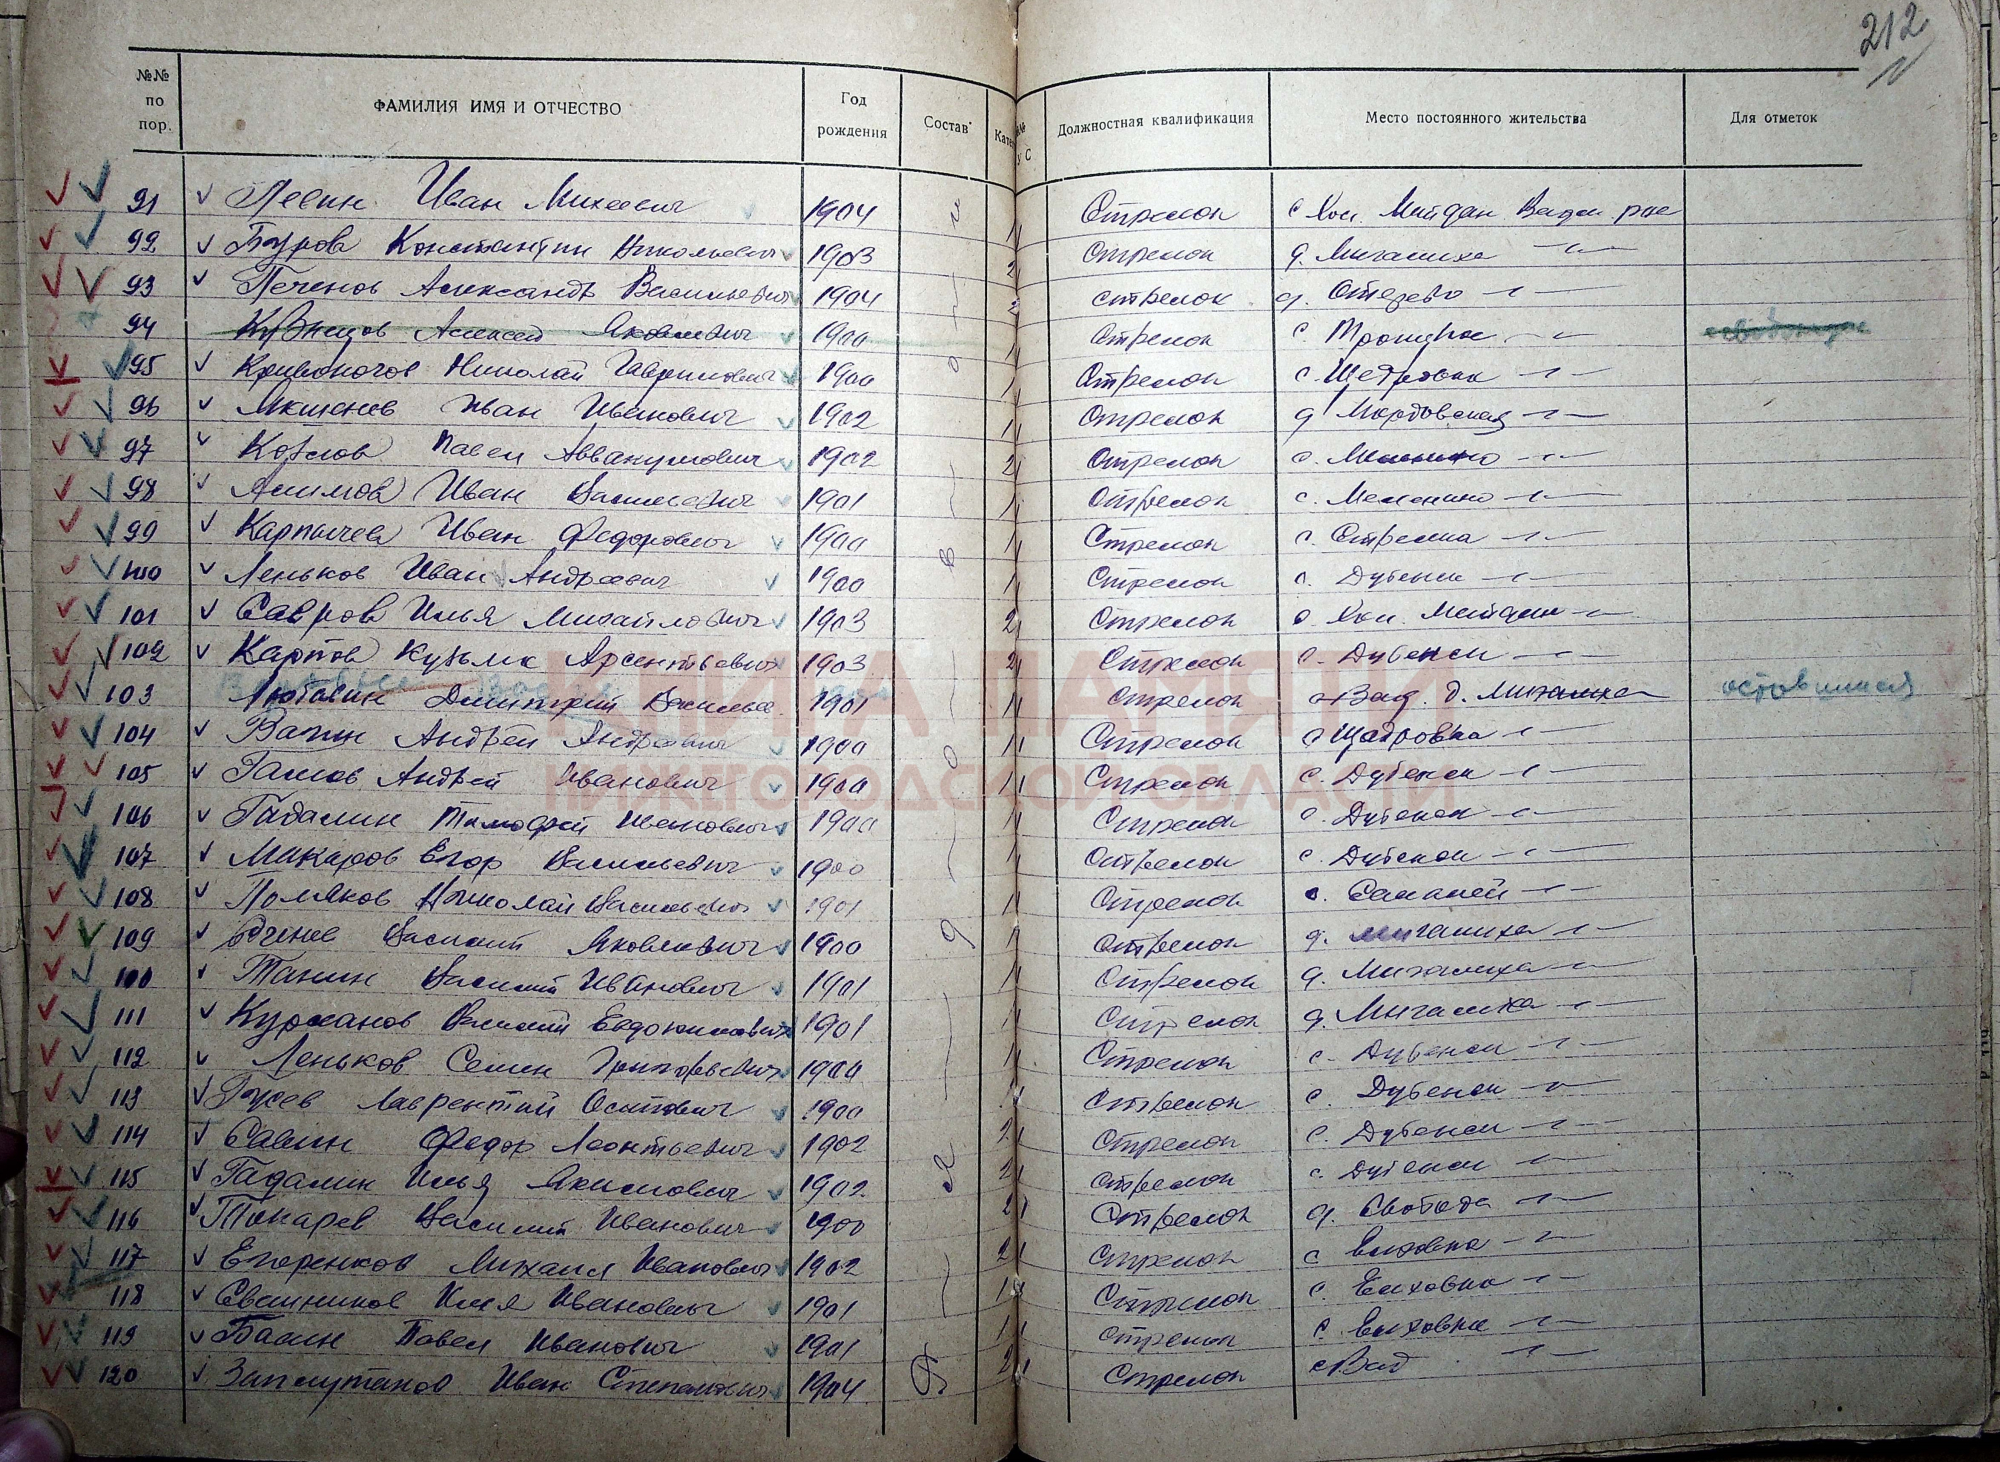 212
№№ по пор. ФАМИЛИЯ ИМЯ И ОТЧЕСТВО Год рождения Состав Кате № У С Должностная квалификация Место постоянного жительства Для отметок
91 Левин Иван Михеевич 1904 1 Стрелок с Хоп. Майдан Вадск. рае
92 Буров Константин Николаевич 1903 2 Стрелок д. Мигалиха -〃-
93 Печенов Александр Васильевич 1904 2 стрелок д. -〃-
94 Кузнецов Алексей Яковлевич 1900 1 Стрелок с. -〃-
95 Кривоногов Николай Гаврилович 1900 1 Стрелок с. Щедровка -〃-
96 Иван Иванович 1902 1 Стрелок д Мордовская -〃-
97 Козлов Павел Аввакумович 1902 2 Стрелок с. -〃-
98 Асимов Иван Васильевич 1901 1 Стрелок с. -〃-
99 Карпычев Иван Федорович 1900 1 Стрелок с. Стрелка -〃-
100 Леньков Иван Андреевич 1900 1 Стрелок с. Дубенки -〃-
101 Савров Илья Михайлович 1903 2 Стрелок с Хоп. Майдан -〃-
102 Карпов Кузьма Арсентьевич 1903 2 Стрелок с. Дубенки -〃-
103 Любавин Дмитрий Василье. 1901 1 Стрелок с Вад. д. Мигалиха оставшийся
104 Вагин Андрей Андреевич 1900 1 Стрелок с Щедровка -〃-
105 Андрей Иванович 1900 1 Стрелок с. Дубенки -〃-
106 Гадалин Тимофей Иванович 1900 1 Стрелок с. Дубенки -〃-
107 Макаров Егор Васильевич 1900 1 Стрелок с. Дубенки -〃-
108 Поляков Николай Васильевич 1901 1 Стрелок с. -〃-
109 Василий Яковлевич 1900 1 Стрелок д. Мигалиха -〃-
100 Танин Василий Иванович 1901 1 Стрелок д. Мигалиха -〃-
111 Курманов Василий Евдокимович 1901 1 Стрелок д. Мигалиха -〃-
112 Леньков Семен Григорьевич 1900 1 Стрелок с. Дубенки -〃-
113 Гусев Лаврентий Осипович 1900 1 Стрелок с. Дубенки -〃-
114 Савин Федор Леонтьевич 1902 2 Стрелок с. Дубенки -〃-
115 Гадалин Илья Якимович 1902 2 Стрелок с. Дубенки -〃-
116 Токарев Василий Иванович 1900 2 Стрелок д. Свобода -〃-
117 Егоренков Михаил Иванович 1902 2 Стрелок с Елховка -〃-
118 Свешников Илья Иванович 1901 1 Стрелок с. Елховка -〃-
119 Павел Иванович 1901 1 Стрелок с. Елховка -〃-
120 Заплутанов Иван Степанович 1904 2 Стрелок с Вад -〃-
КНИГА ПАМЯТИ
НИЖЕГОРОДСКОЙ ОБЛАСТИ